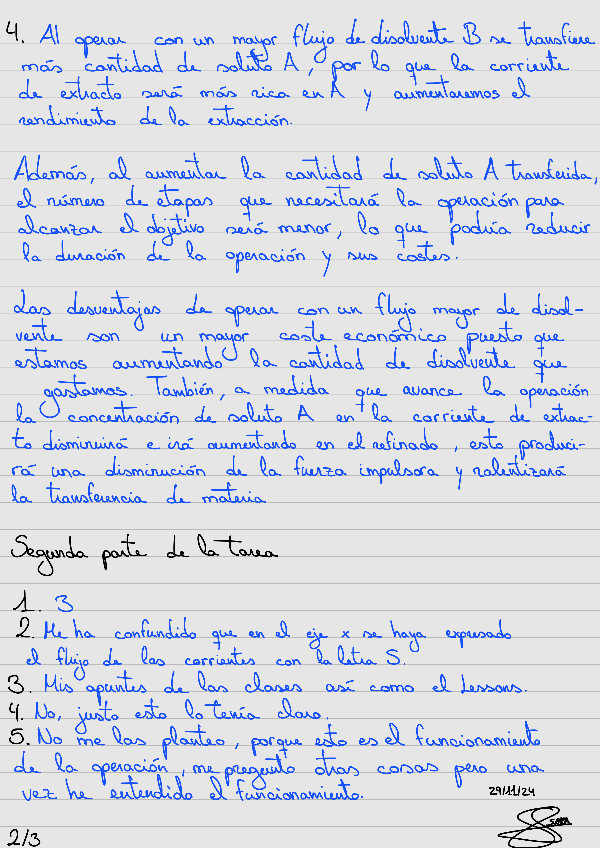 4. Al operar con un mayor flujo de disolvente B se transfiere
más cantidad de soluto A, por lo que la corriente
de extracto será más rica en A y aumentaremos el
rendimiento de la extracción.
Además, al aumentar la cantidad de soluto A transferida,
el número de etapas que necesitará la operación para
alcanzar el objetivo será menor, lo que podría reducir
la duración de la operación y sus costes.
Las desventajas de operar con un flujo mayor de disol-
vente son un mayor coste económico puesto que
estamos aumentando la cantidad de disolvente que
gastamos. También, a medida que avance la operación
la concentración de soluto A en la corriente de extrac-
to disminuirá e irá aumentando en el refinado, esto produci-
rá una disminución de la fuerza impulsora y ralentizará
la transferencia de materia
Segunda parte de la tarea
1. 3
2. Me ha confundido que en el eje x se haya expresado
el flujo de las corrientes con la letra S.
3. Mis apuntes de las clases así como el Lessons.
4. No, justo esto lo tenía claro.
5. No me las planteo, porque esto es el funcionamiento
de la operación, me pregunto otras corsas pero una
vez he entendido el funcionamiento.
29/11/24
2/3